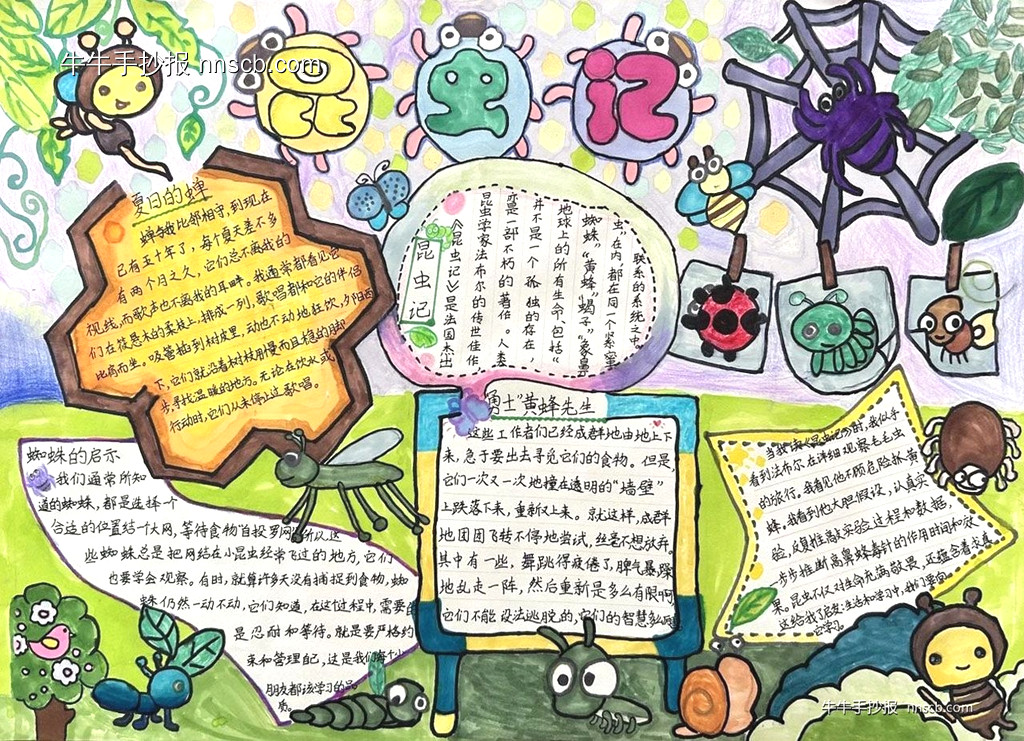 牛牛手抄报 nnscb.com
昆虫记
夏日的蝉
蝉与我比邻相守,到现在
已有五十年了,每个夏天差不多
有两个月之久,它们总不离我的
视线,而歌声也不离我的耳畔。我通常都看见它
们在筱悬木的柔枝上,排成一列,歌唱者和它的伴侣
比肩而坐。吸管插到树皮里,动也不动地狂饮,夕阳西
下,它们就沿着树枝用慢而且稳的脚
步,寻找温暖的地方。无论在饮水或
行动时,它们从未停止过歌唱。
昆虫记
《昆虫记》是法国杰出
昆虫学家法布尔的传世佳作
亦是一部不朽的著作。人类
并不是一个孤独的存在,
地球上的所有生命包括“
蜘蛛”“黄蜂”“蝎子”“象鼻
虫”在内都在同一个紧密
联系的系统之中。
勇士“黄蜂先生
这些工作者们已经成群地由地上下
来,急于要出去寻觅它们的食物。但是
它们一次又一次地撞在透明的“墙壁”
上跌落下来,重新又上来。就这样,成群
地团团飞转不停地尝试,丝毫不想放弃。
其中有一些,舞跳得疲倦了,脾气暴躁
地乱走一阵,然后重新是多么有限啊
它们不能设法逃脱的,它们的智慧
蜘蛛的启示
我们通常所知
道的蜘蛛,都是选择一个
合适的位置结一大网,等待食物自投罗网所以这
些蜘蛛总是把网结在小昆虫经常飞过的地方,它们
也要学会观察。有时,就算许多天没有捕捉到食物,蜘
蛛仍然一动不动,它们知道,在这个过程中,需要的
是忍耐和等待。就是要严格约
束和管理自己,这是我们每个小
朋友都该学习的品
质。
当我读《昆虫记》时,我似乎
看到法布尔在详细观察毛毛虫
的旅行,我看见他不顾危险捕黄
蜂,我看到他大胆假设,认真实
验,反复推敲实验过程和数据,
一步步推断高鼻蜂毒针的作用时间和效
果。昆虫不仅对生命充满敬畏,还蕴含着求真
这给我了启发:生活和学习中,我们要向
它学习。
牛牛手抄报 nnscb.com